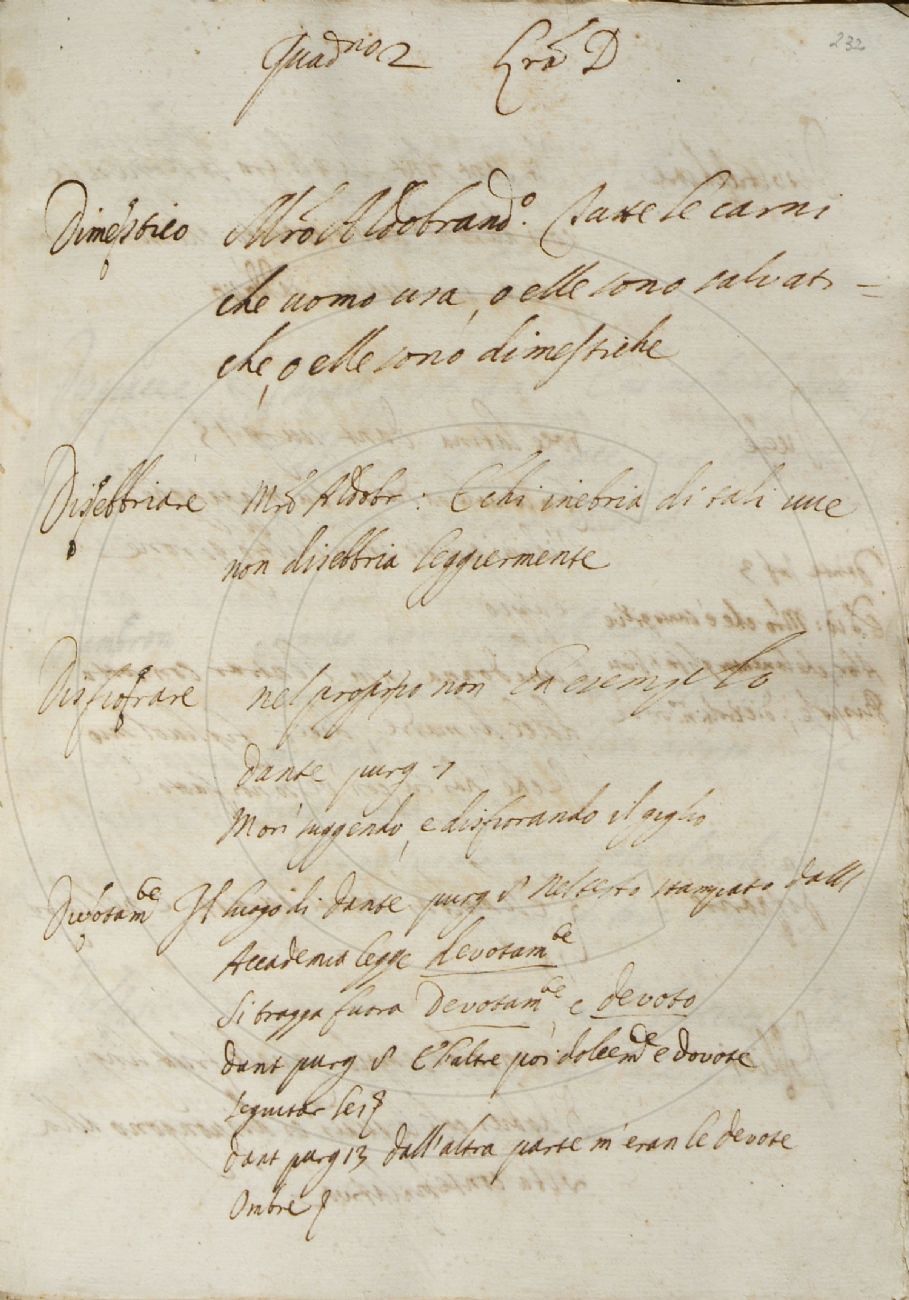 232
Quad.rno 2 Lra D
Dimestico Mro Aldobrand.o: Tutte le carni
che uomo usa, o elle sono salvati=
che, o elle sono dimestiche
Disebbriare Mro Aldobr: E chi inebria di tali uve
non disebbria leggiermente
Disfiorare nel proprio non ha esempio
dante purg 7
Morì fuggendo, e disfiorando il giglio
Divotam.te Il luogo di dante purg 8 nel testo stampato dall
Accademia legge devotam.te
Si tragga fuora Devotam.te e devoto
dant purg 8 E l'altre poi dolcem.te e devote
seguitar lei
dant purg 13 dall'altra parte m'eran le devote
Ombre